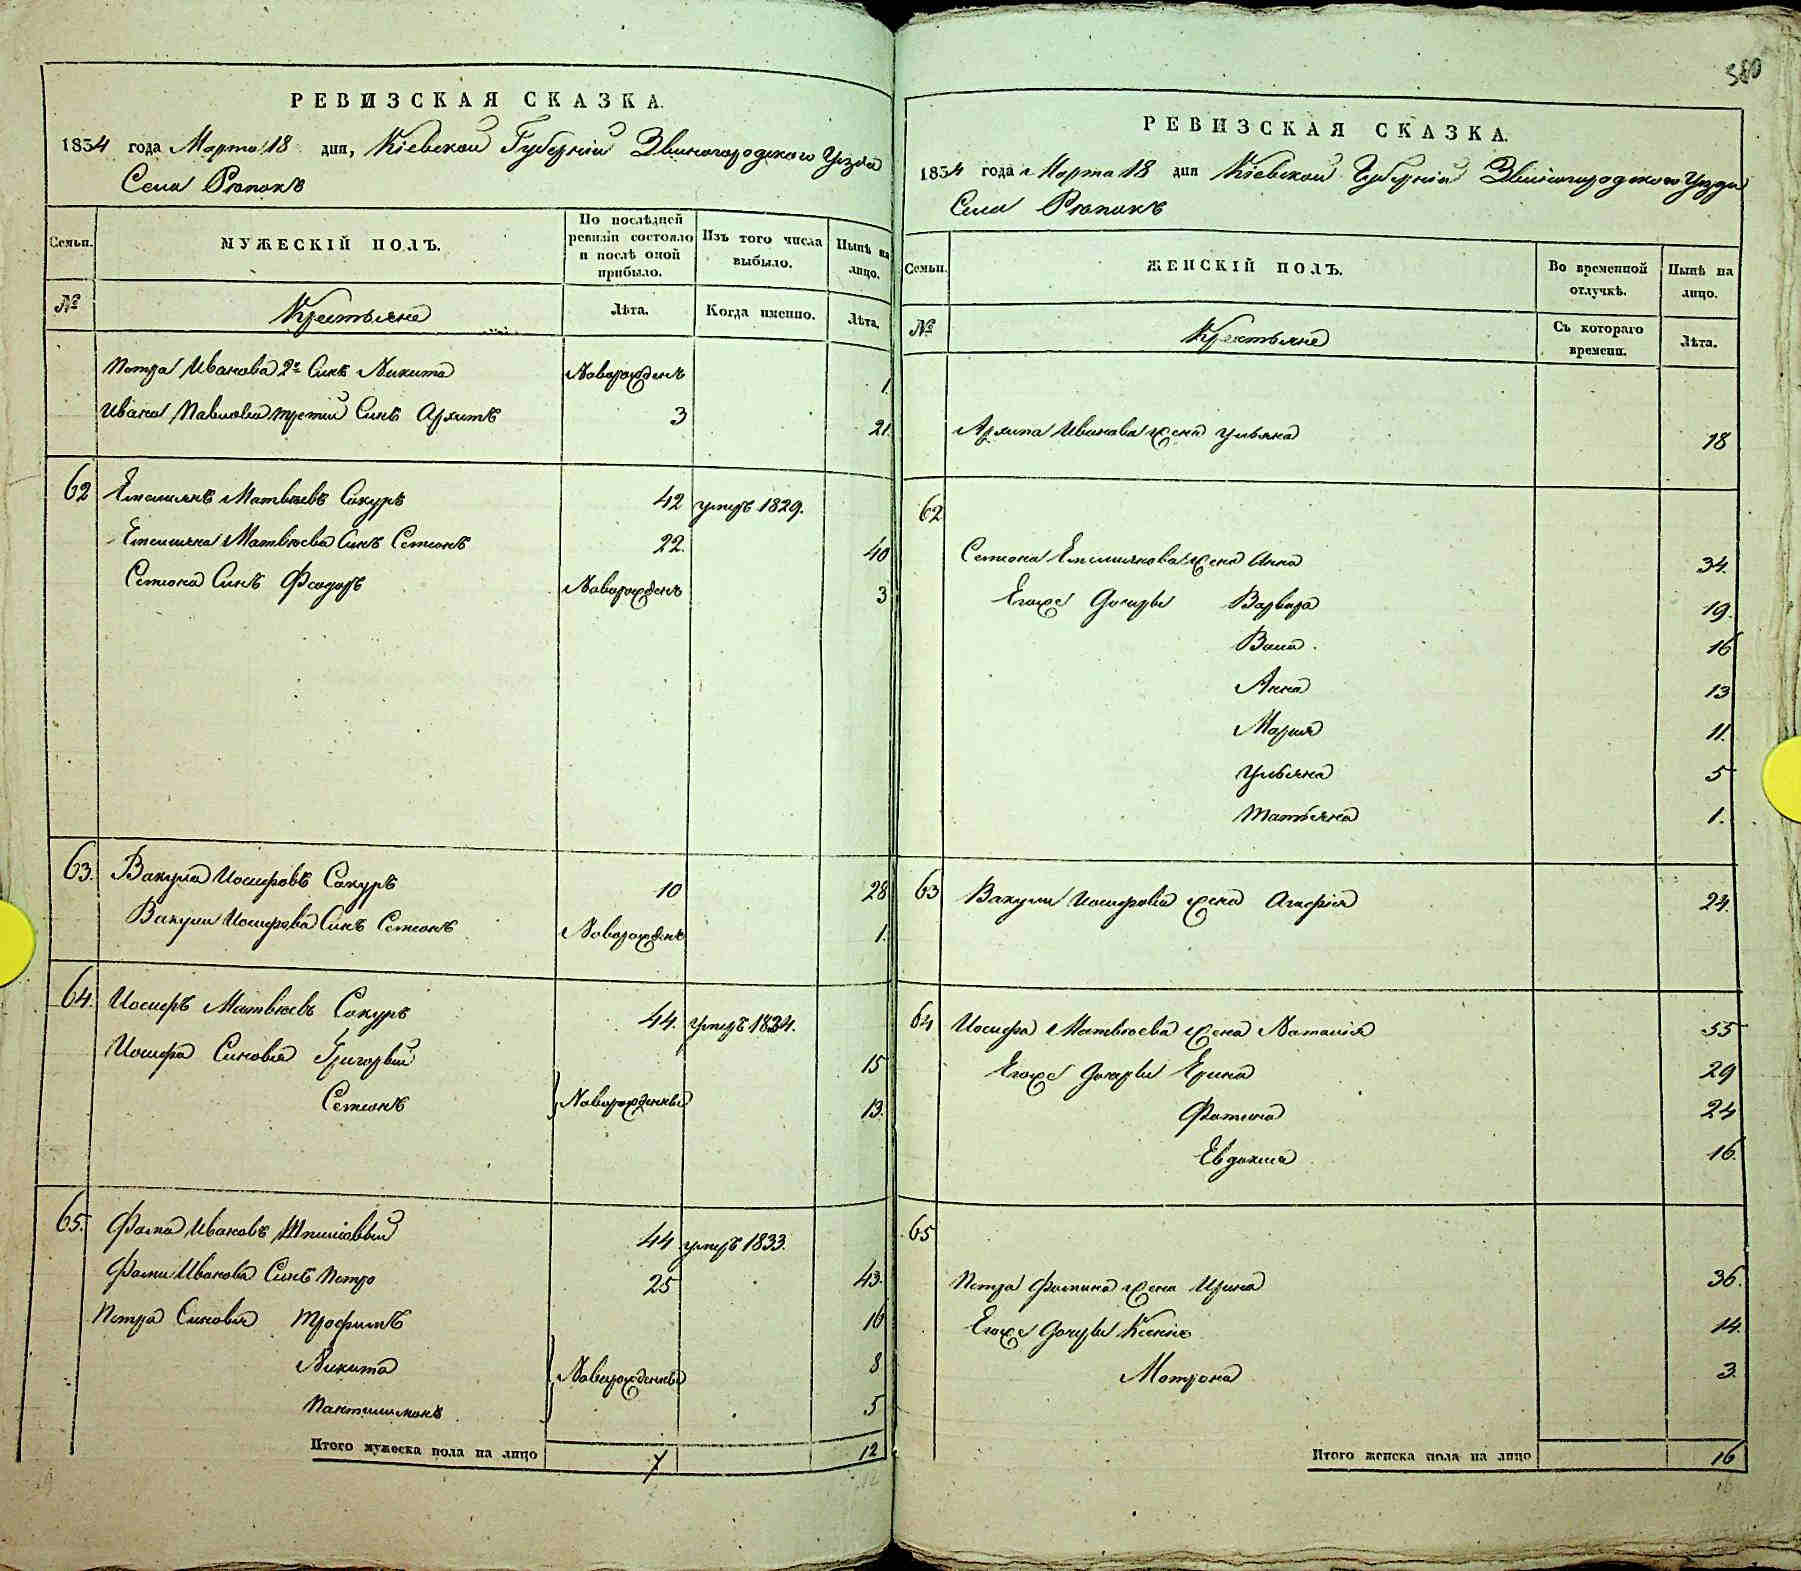 РЕВИЗСКАЯ СКАЗКА.
1834 года Марта 18 дня, Кіевской Губерніи Звиногородского Уезда
Села Рюпокъ
Семьи.
МУЖЕСКІЙ ПОЛЪ.
По послѣдней ревизіи состояло и послѣ оной прибыло.
Изъ того числа выбыло.
Нынѣ на лицо.
№
Крестьяне
Лѣта.
Когда именно.
Лѣта.
Петра Иванова 2й Синъ Никита Новорожденъ 1
Ивана Павлова третій Синъ Архипъ 3 21
62 Емилиянъ Матвѣевъ Сокуръ 42 умеръ 1829.
Емилияна Матвѣева Синъ Семионъ 22. 40
Семиона Синъ Феодоръ Новорожденъ 3
63. Вакула Иосифовъ Сокуръ 10 28
Вакули Иосифова Синъ Семионъ Новорожденъ 1.
64. Иосифъ Матвѣевъ Сокуръ 44. умеръ 1834.
Иосифа Синовья Григорій 15
Семионъ Новорожденны 13.
65. Фома Ивановъ 44 умеръ 1833.
Фоми Иванова Синъ Петро 25 43.
Петра Синовья Трофимъ 16
Никита Новорожденны 8
Пантилимонъ 5
Итого мужеска пола на лицо 7 12
12
380
РЕВИЗСКАЯ СКАЗКА.
1834 года Марта 18 дня Кіевской Губерніи Звиногородского Уезда
Села Рюпокъ
Семьи.
ЖЕНСКІЙ ПОЛЪ.
Во временной отлучкѣ.
Нынѣ на лицо.
№
Крестьяне
Съ котораго времени.
Лѣта.
Архипа Иванова жена Ульяна 18
62
Семиона Емилиянова жена Анна 34.
Егоже дочеры Варвара 19.
16
Анна 13
Мария 11.
Ульяна 5
Татьяна 1.
63 Вакули Иосифова жена Агафія 24.
64 Иосифа Матвѣева жена Наталія 55
Егоже дочеры Ерина 29
Фотина 24
Евдокия 16.
65
Петра Фомина жена Ирина 36.
Егоже дочеры Ксенія 14.
Мотрона 3.
Итого женска пола на лицо 16
16